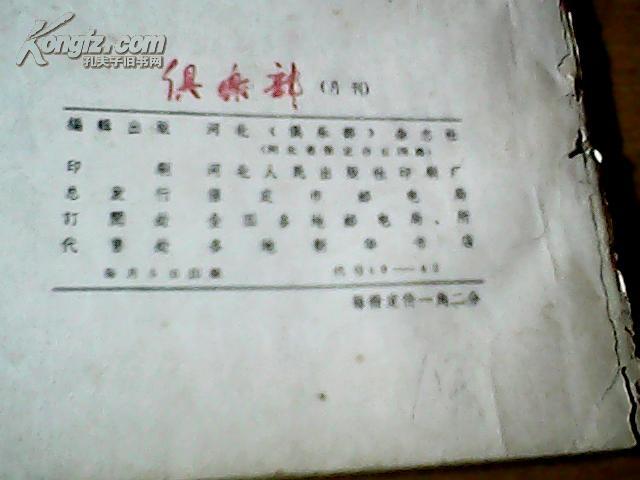 Kongfz.com
孔夫子旧书网
俱乐部（月刊）
编辑出版 河北《俱乐部》杂志社
印刷 河北人民出版社印刷厂
总发行 保定市邮电局
订阅处 全国各地邮电局、所
代售处 各地新华书店
每月5日出版
每册定价一角二分